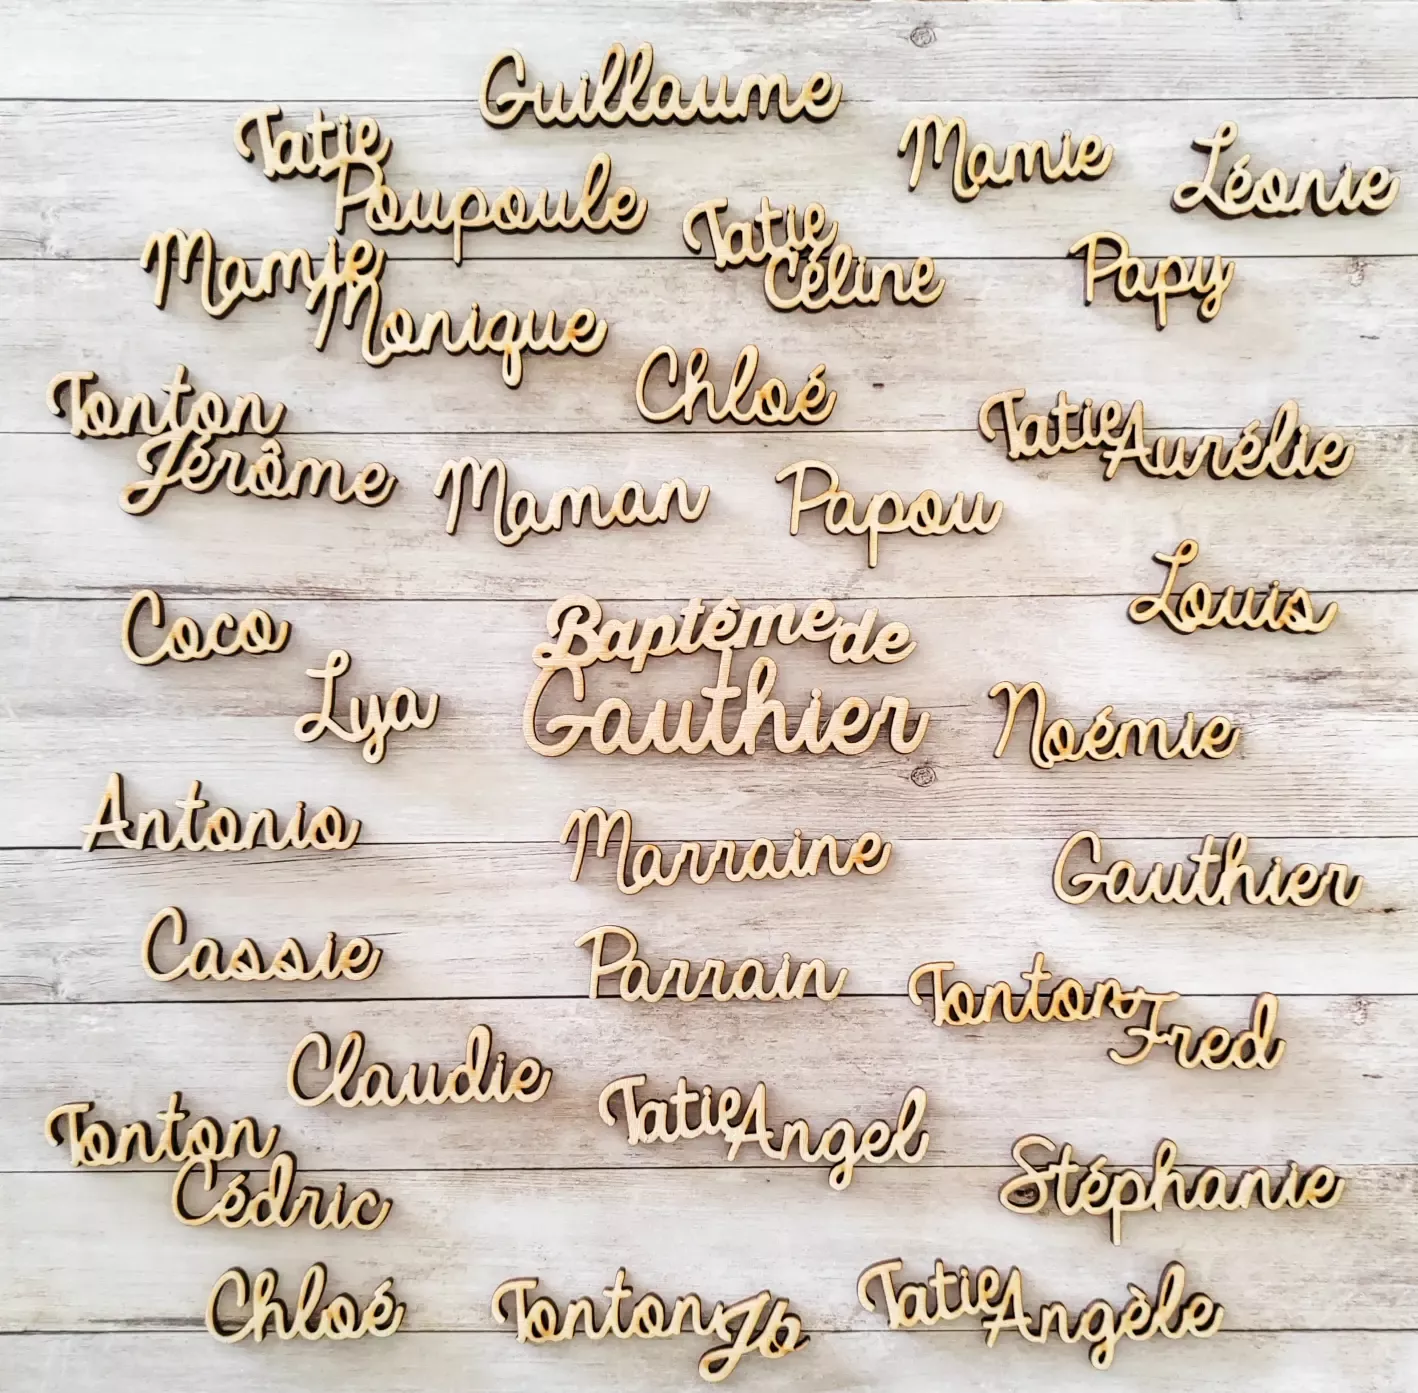 Guillaume
Tatie
Poupoule
Mamie
Léonie
Tatie
Céline
Mamie
Monique
Papy
Chloé
Tonton
Jérôme
Tatie Aurélie
Maman
Papou
Louis
Coco
Baptême de
Gauthier
Lya
Noémie
Antonio
Marraine
Gauthier
Cassie
Parrain
Tonton
Fred
Claudie
Tatie Angel
Tonton
Cédric
Stéphanie
Chloé
Tonton Jb
Tatie Angèle